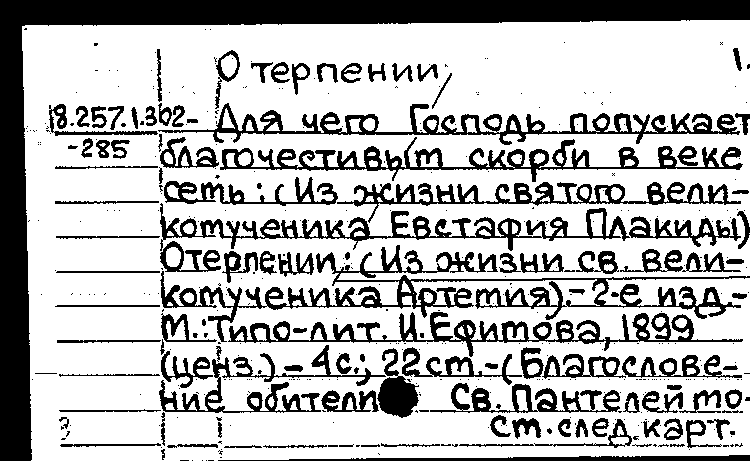 О терпении 1.
18.257.1.302- Для чего Господь попускает
-285 благочестивым скорби в веке
сеть: (Из жизни святого вели-
комученика Евстафия Плакиды)
О терпении: (Из жизни св. вели-
комученика Артемия).-2-е изд.-
М.: Типо-лит. И. Ефимова, 1899
(ценз.) - 4 с.; 22 см.- (Благослове-
ние обители Св. Пантелеймо-
См. след. карт.